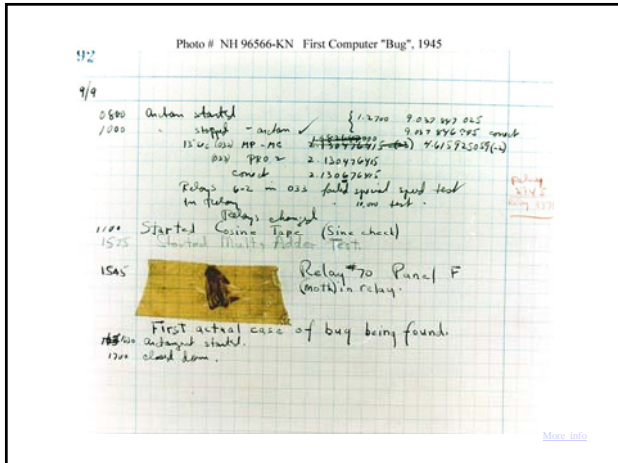 Photo # NH 96566-KN First Computer "Bug", 1945
92
9/9
0800 antan started
1000 " stopped - antan ✓ { 1.2700 9.037 847 025
9.037 846 995 correct
13"UC (032) MP-MC 2.130476415 (-3) 4.615925059(-2)
(033) PRO 2 2.130476415
correct 2.130676415
Relays 6-2 in 033 failed special speed test
in relay " 10,000 test.
Relay
2145
Relays changed
1100 Started Cosine Tape (Sine check)
1525 Started Mult+Adder Test.
1545 Relay #70 Panel F
(moth) in relay.
First actual case of bug being found.
1630 antangent started.
1700 closed down.
More info